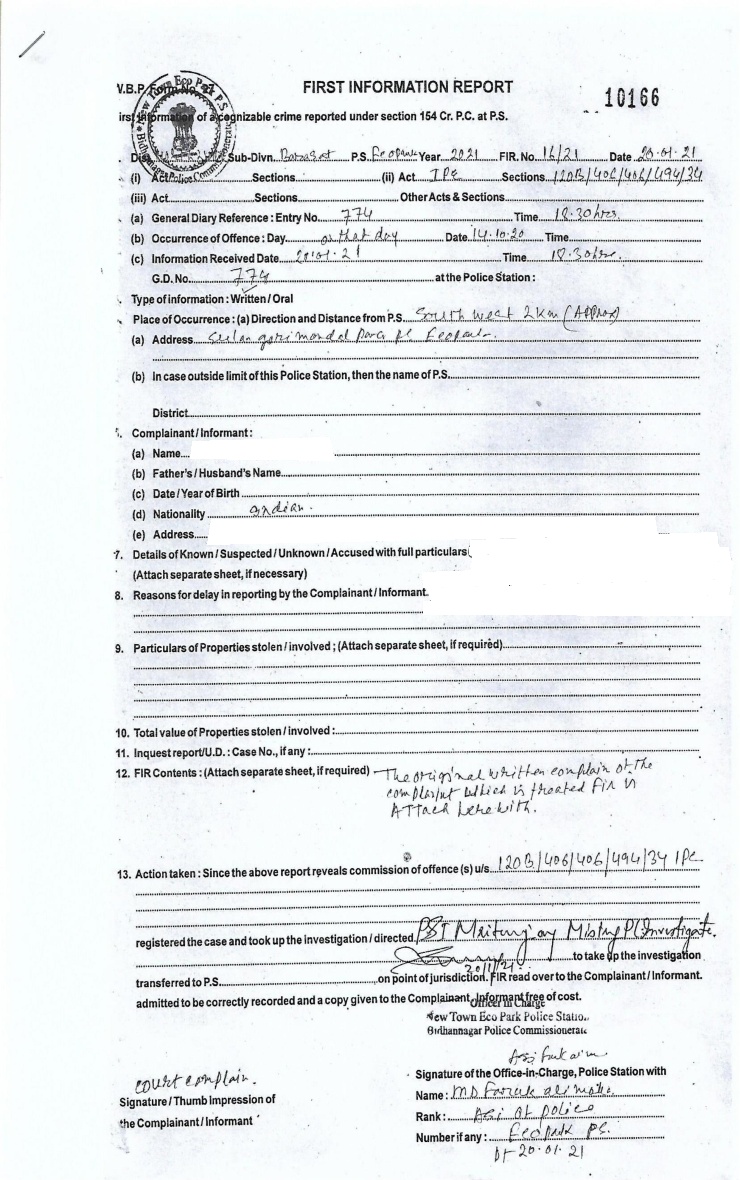 FIRST INFORMATION REPORT
10166
V.B.P. Form No. 27
New Town Eco Park P.S.
Bidhannagar Police Commissionerate
irst Information of a cognizable crime reported under section 154 Cr. P.C. at P.S.
Dis Sub-Divn. Barasat P.S. Ecopark Year 2021 FIR. No. 16/21 Date 20.01.21
(i) Act Sections (ii) Act IPC Sections 120B/406/406/494/34
(iii) Act Sections Other Acts & Sections
(a) General Diary Reference : Entry No. 774 Time 18.30 hrs.
(b) Occurrence of Offence : Day on that day Date 14.10.20 Time
(c) Information Received Date 20.01.21 Time 18.30 hrs.
G.D. No. 774 at the Police Station :
Type of information : Written / Oral
Place of Occurrence : (a) Direction and Distance from P.S. South West 2 Km (Approx)
(a) Address para PS Ecopark.
(b) In case outside limit of this Police Station, then the name of P.S.
District
Complainant / Informant :
(a) Name
(b) Father's / Husband's Name
(c) Date / Year of Birth
(d) Nationality Indian.
(e) Address
7. Details of Known / Suspected / Unknown / Accused with full particulars
(Attach separate sheet, if necessary)
8. Reasons for delay in reporting by the Complainant / Informant.
9. Particulars of Properties stolen / involved ; (Attach separate sheet, if required)
10. Total value of Properties stolen / involved :
11. Inquest report/U.D. : Case No., if any :
12. FIR Contents : (Attach separate sheet, if required) - The original written complain of the
complaint which is treated FIR is
Attach herewith.
13. Action taken : Since the above report reveals commission of offence (s) u/s. 120B/406/406/494/34 IPC.
registered the case and took up the investigation / directed PSI Mritunjay Mistry Pl. Investigate.
20/1/21 to take up the investigation
transferred to P.S. on point of jurisdiction. FIR read over to the Complainant / Informant.
admitted to be correctly recorded and a copy given to the Complainant Informant free of cost.
Officer in Charge
New Town Eco Park Police Station
Bidhannagar Police Commissionerate
court complain.
Signature / Thumb Impression of
the Complainant / Informant
Signature of the Office-in-Charge, Police Station with
Name : MD Faruk ali
Rank : Asi of police
Number if any : Ecopark PS.
Dt- 20.01.21